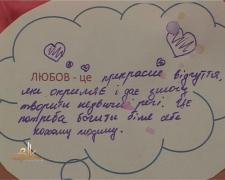 ЛЮБОВ - це прекрасне відчуття,
яке окриляє і дає змогу
творити незвичні речі. Це
потреба бачити біля себе
кохану людину.